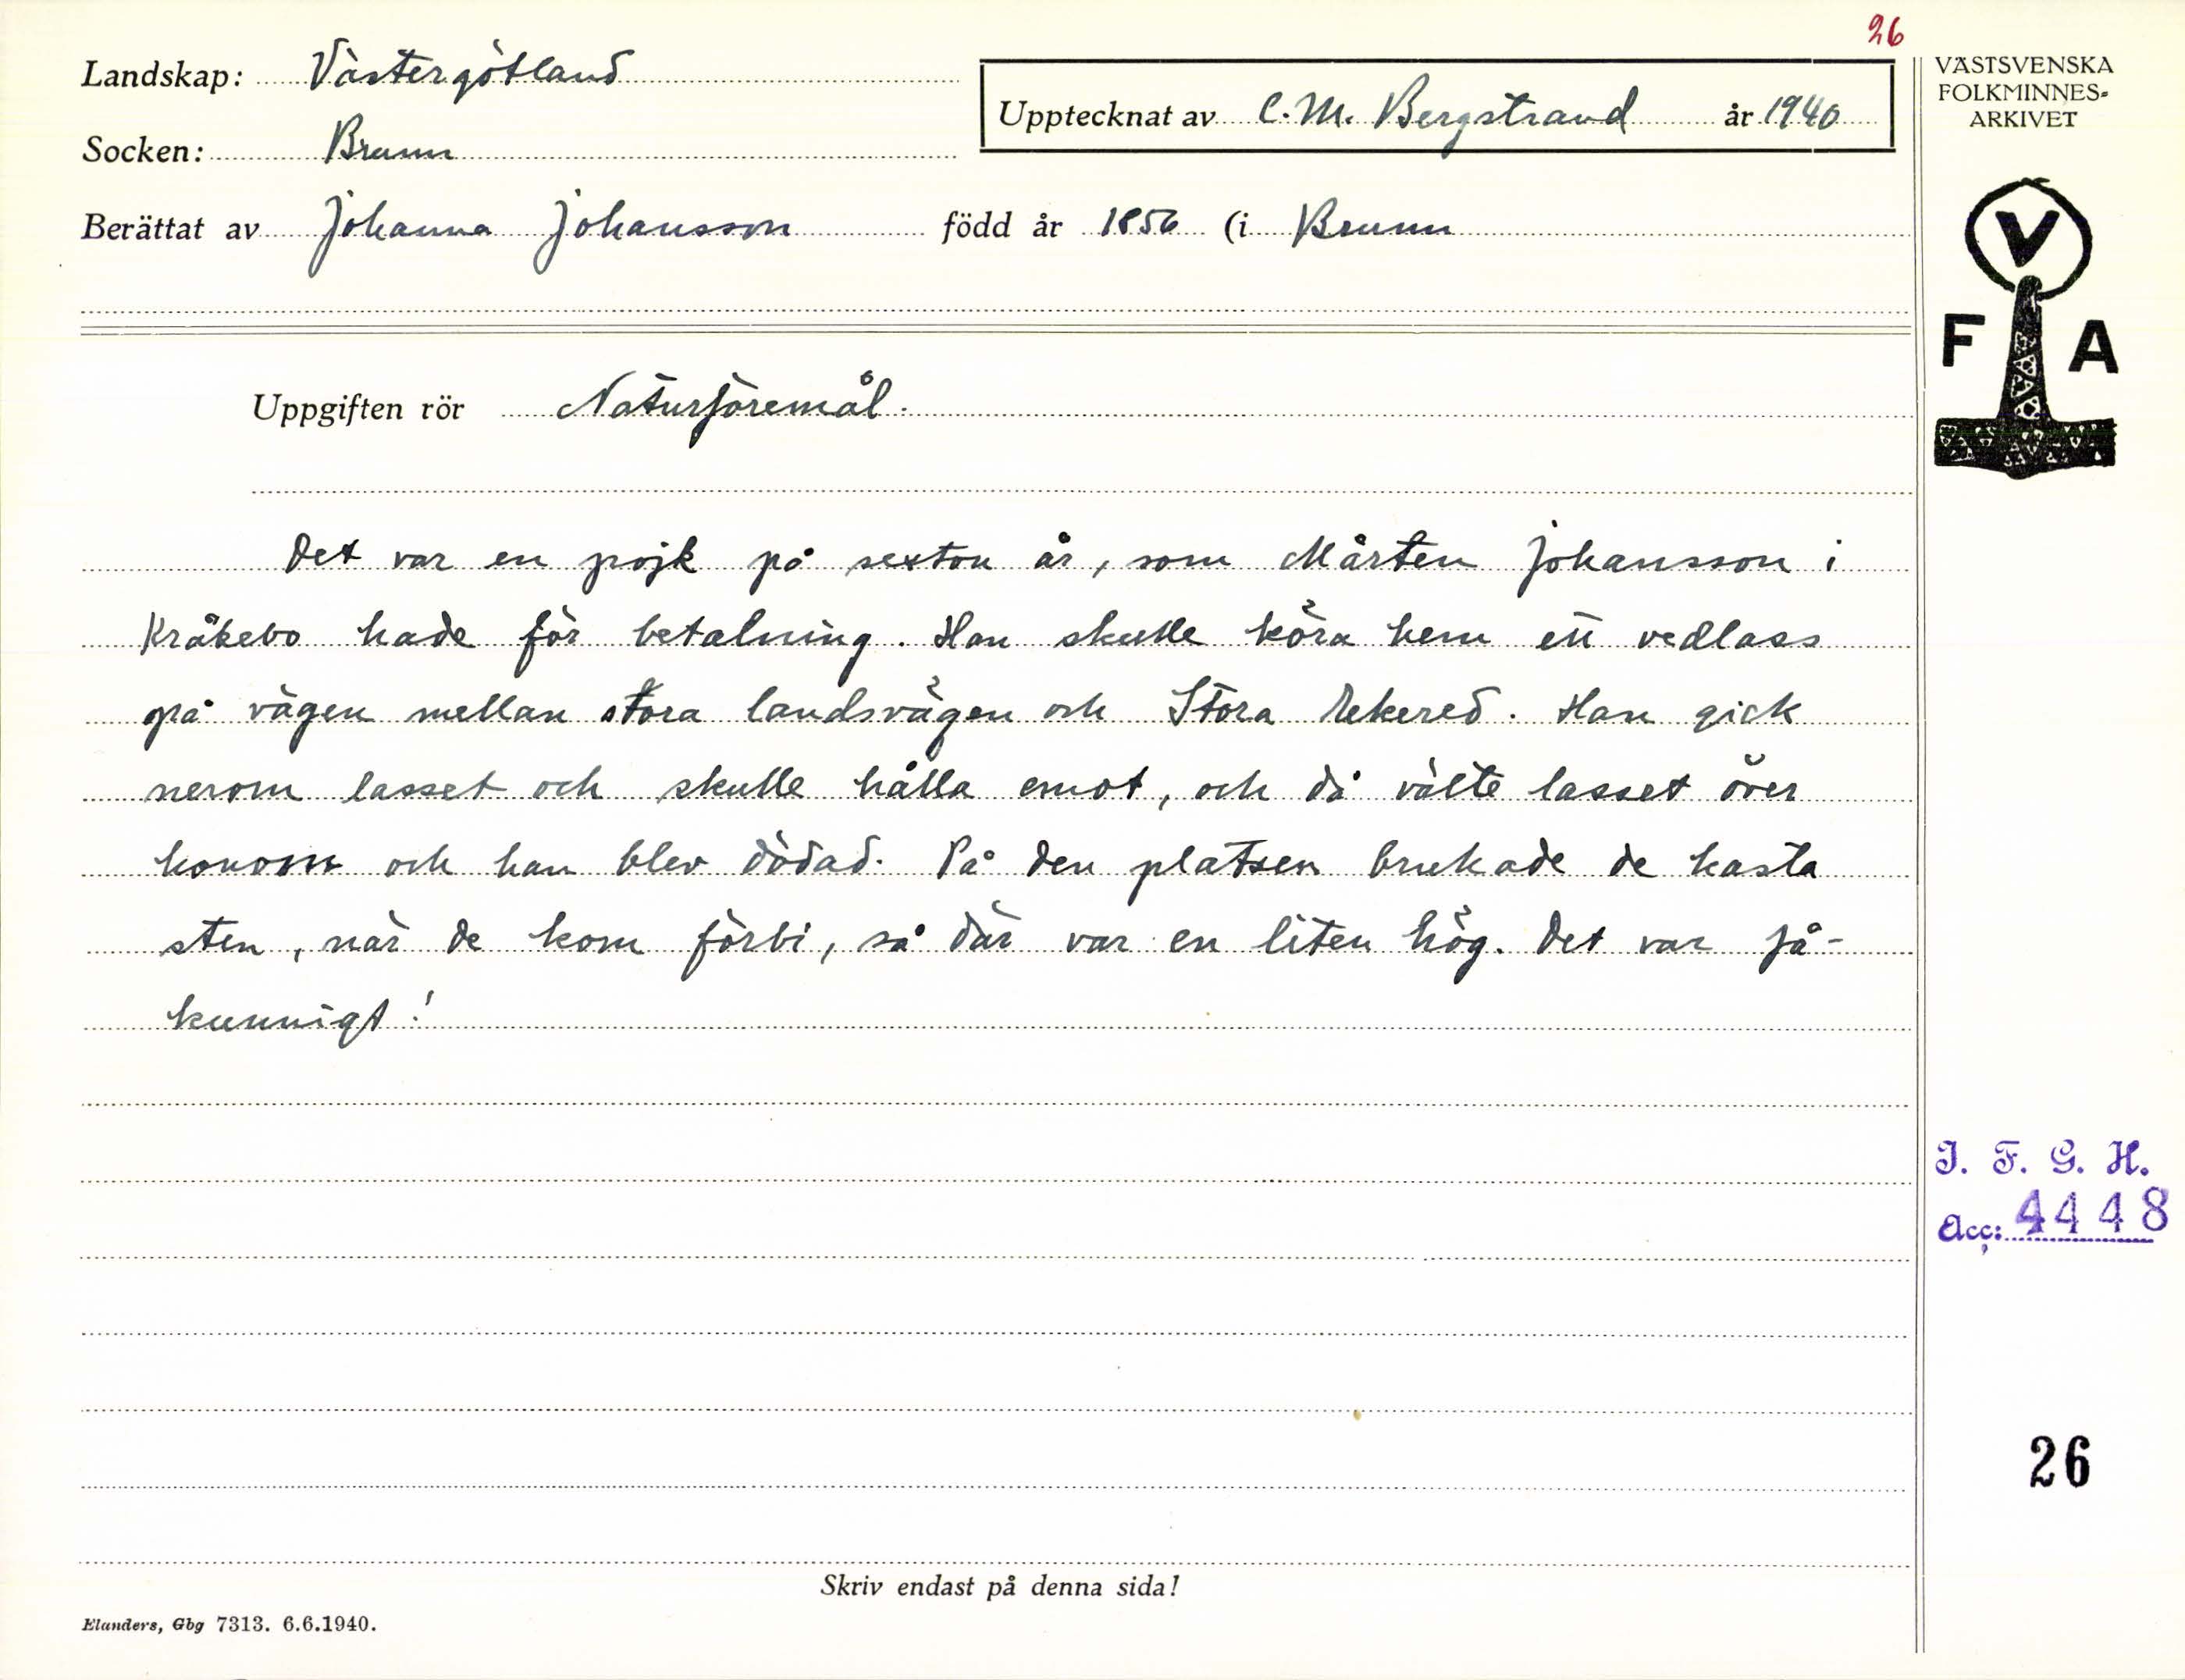 26
Landskap: Västergötland
Upptecknat av C. M. Bergstrand år 1940
Socken: Brunn
Berättat av Johanna Johansson född år 1856 (i Brunn
VÄSTSVENSKA
FOLKMINNES-
ARKIVET
V
F A
Uppgiften rör Naturföremål.
Det var en pojk på sexton år, som Mårten Johansson i
Kråkebo hade för betalning. Han skulle köra hem ett vedlass
på vägen mellan stora landsvägen och Stora Rekered. Han gick
nerom lasset och skulle hålla emot, och då välte lasset över
honom och han blev dödad. På den platsen brukade de kasta
sten, när de kom förbi, så där var en liten hög. Det var få-
kunnigt!
I. F. G. H.
Acc: 4448
26
Skriv endast på denna sida!
Elanders, Gbg 7313. 6.6.1940.